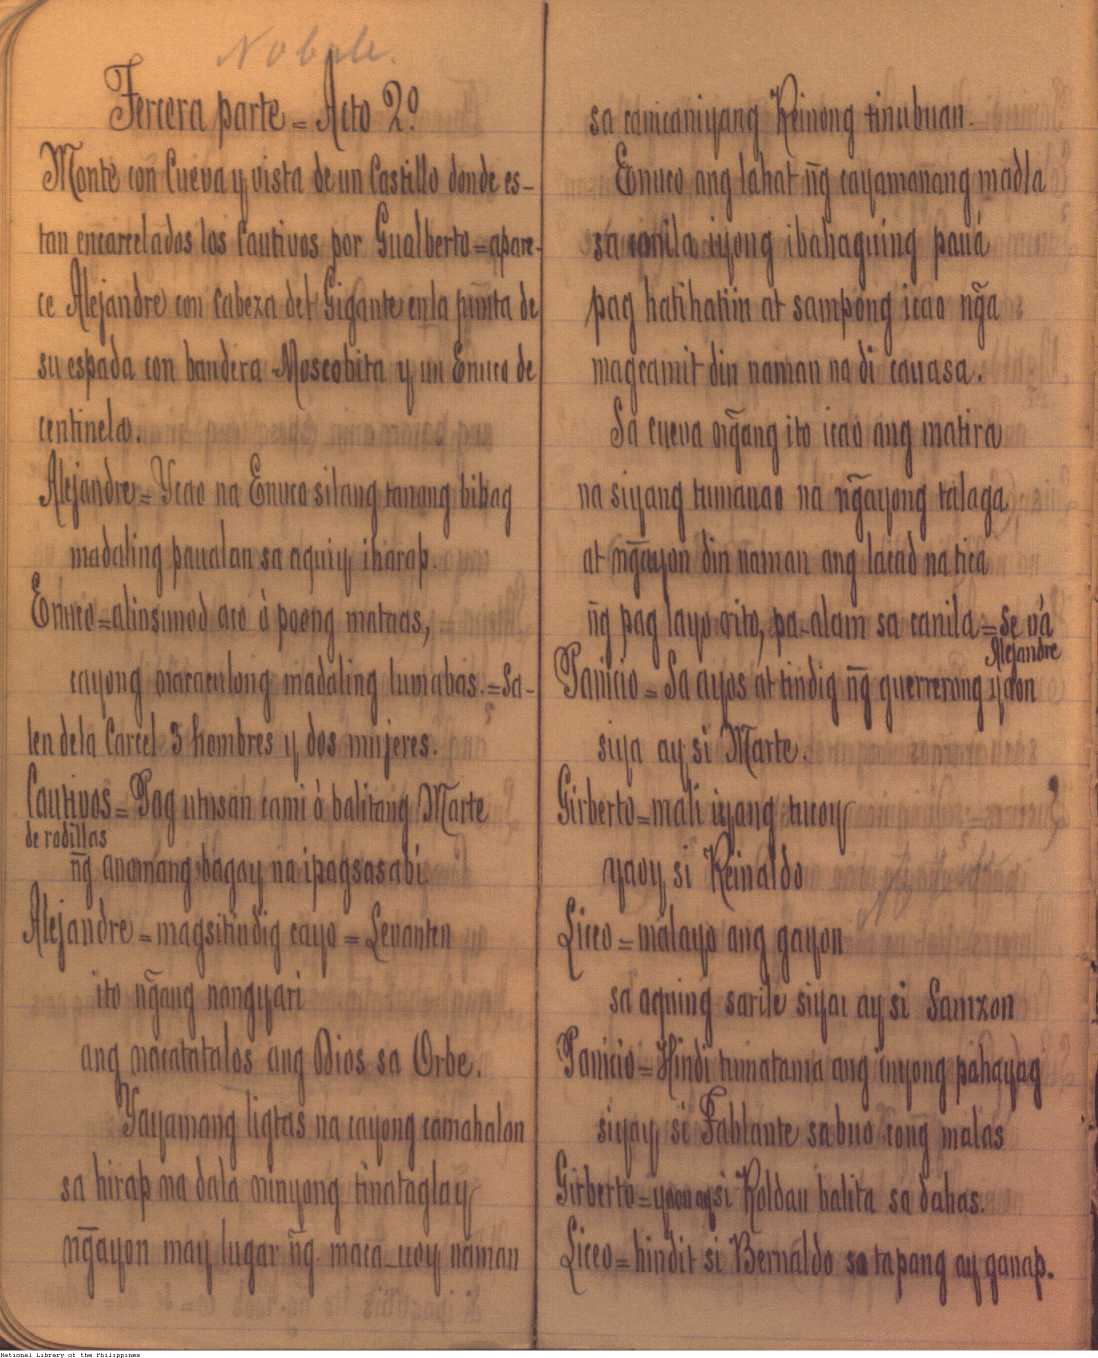 Nobale.
Tercera parte = Acto 2º
Monte con Cueva y vista de un Castillo donde es-
tan encarcelados los Cautivos por Gualberto = apare-
ce Alejandre con Cabeza del Gigante en la punta de
su espada con bandera Moscobita y un Enuco de
centinela.
Alejandre = Ycao na Enuco silang tanang bihag
madaling paualan sa aquiy iharap.
Enuco = alinsunod aco ò poong mataas,
cayong nacaculong madaling lumabas. = Sa-
len dela Carcel 3 hombres y dos mujeres.
Cautivos = Pag utusan cami ò balitang Marte
de rodillas
ñg anomang bagay na ipagsasabi.
Alejandre = magsitindig cayo = Levanten
ito ng̃ang nangyari
ang nacatatalos ang Dios sa Orbe.
Yayamang ligtas na cayong camahalan
sa hirap na dala ninyong tinataglay
ng̃ayon may lugar ñg maca-uoy naman
sa canicaniyang Reinong tinubuan.
Enuco ang lahat ñg cayamanang madla
sa canila iyong ibahaguing pauá
pag hatihatiin at sampong icao ng̃a
magcamit din naman na di cauasa.
Sa cueva ong̃ang ito icao ang matira
na siyang tumanao na ng̃ayong talaga
at ng̃ayon din naman ang lacad na tica
ñg pag layo rito, pa-alam sa canila = Se vá
Alejandre
Panicio = Sa ayos at tindig ñg guerrerong yaon
siya ay si Marte.
Girberto = mali iyang tucoy
yaoy si Reinaldo
Liceo = malayo ang gayon
sa aquing sarile siya ay si Samzon
Panicio = Hindi tumatama ang inyong pahayag
siyay si Fablante sa buo cong malas
Girberto = yaon ay si Roldan balita sa dahas.
Liceo = hindit si Bernaldo sa tapang ay ganap.
National Library of the Philippines